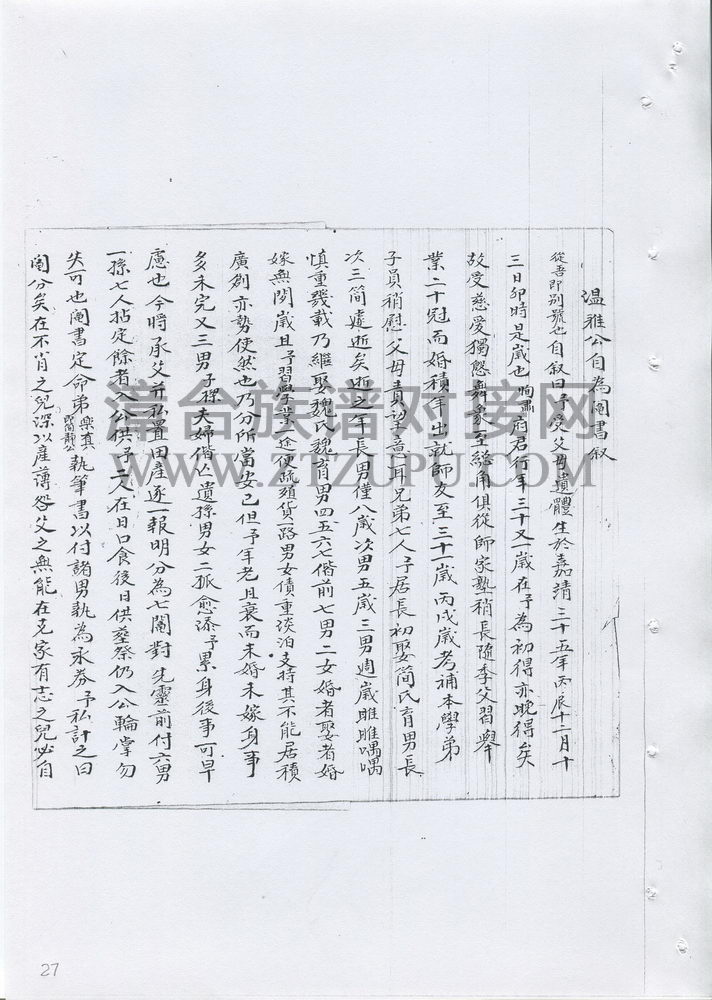 温雅公自為鬮書叙
從吾即別號也自叙曰予受父母遺體生於嘉靖三十五年丙辰十二月十
三日卯時是歲也恂肅府君行年三十又一歲在予為初得亦晚得矣
故受慈愛獨慇舞象至總角俱從師家塾稍長隨季父習舉
業二十冠而婚積年出就師友至三十一歲丙戌歲考補本學弟
子員稍慰父母責望意耳兄弟七人予居長初娶简氏育男長
次三简遽逝矣逝之年長男僅八歲次男五歲三男週歲睢睢喁喁
慎重幾載乃繼娶魏氏魏育男四五六七偕前七男二女婚者娶者婚
嫁無閒歲且予習學業一途便疏殖貨一路男女債重淡泊支持其不能居積
廣創亦勢使然也乃分所當安已但予年老且衰而未婚未嫁身事
多未完又三男子祼夫婦偕亡遺孫男女二孤愈添予累身後事可早
慮也今將承父并私置田產逐一報明分為七鬮對先靈前付六男
一孫七人拈定餘者入公供予二人在日口食後日供塟祭仍入公輪掌勿
失可也鬮書定命弟樂真簡靜公執筆書以付諸男執為永券予私計之曰
鬮分矣在不肖之兒深以產薄咎父之無能在克家有志之兒必自
漳台族譜对接网
WWW.ZTZUPU.COM
27